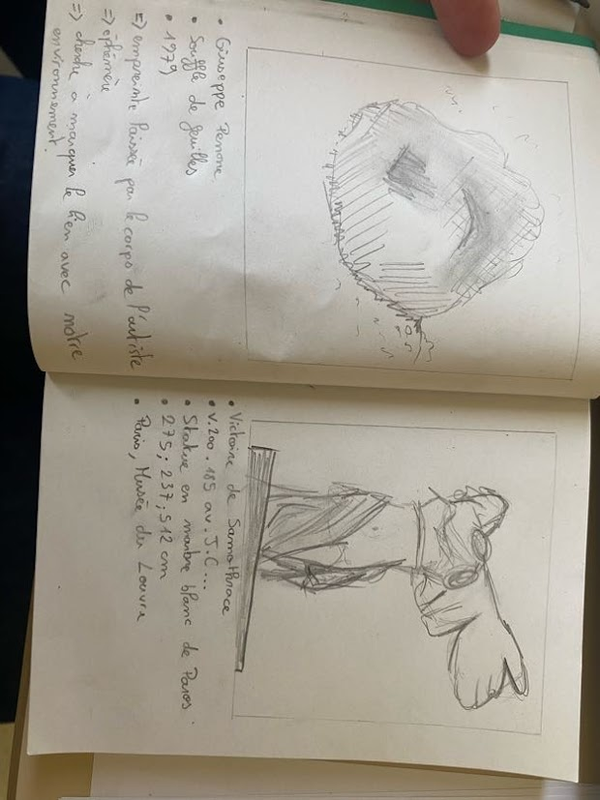 • Giuseppe Penone
• Souffle de feuilles
• 1979
=> empreinte laissée par le corps de l'artiste
=> éphémère
=> cherche à marquer le lien avec notre
environnement.
• Victoire de Samothrace
• v.200-185 av. J.C...
• Statue en marbre blanc de Paros.
• 275; 237; 512 cm
• Paris, Musée du Louvre